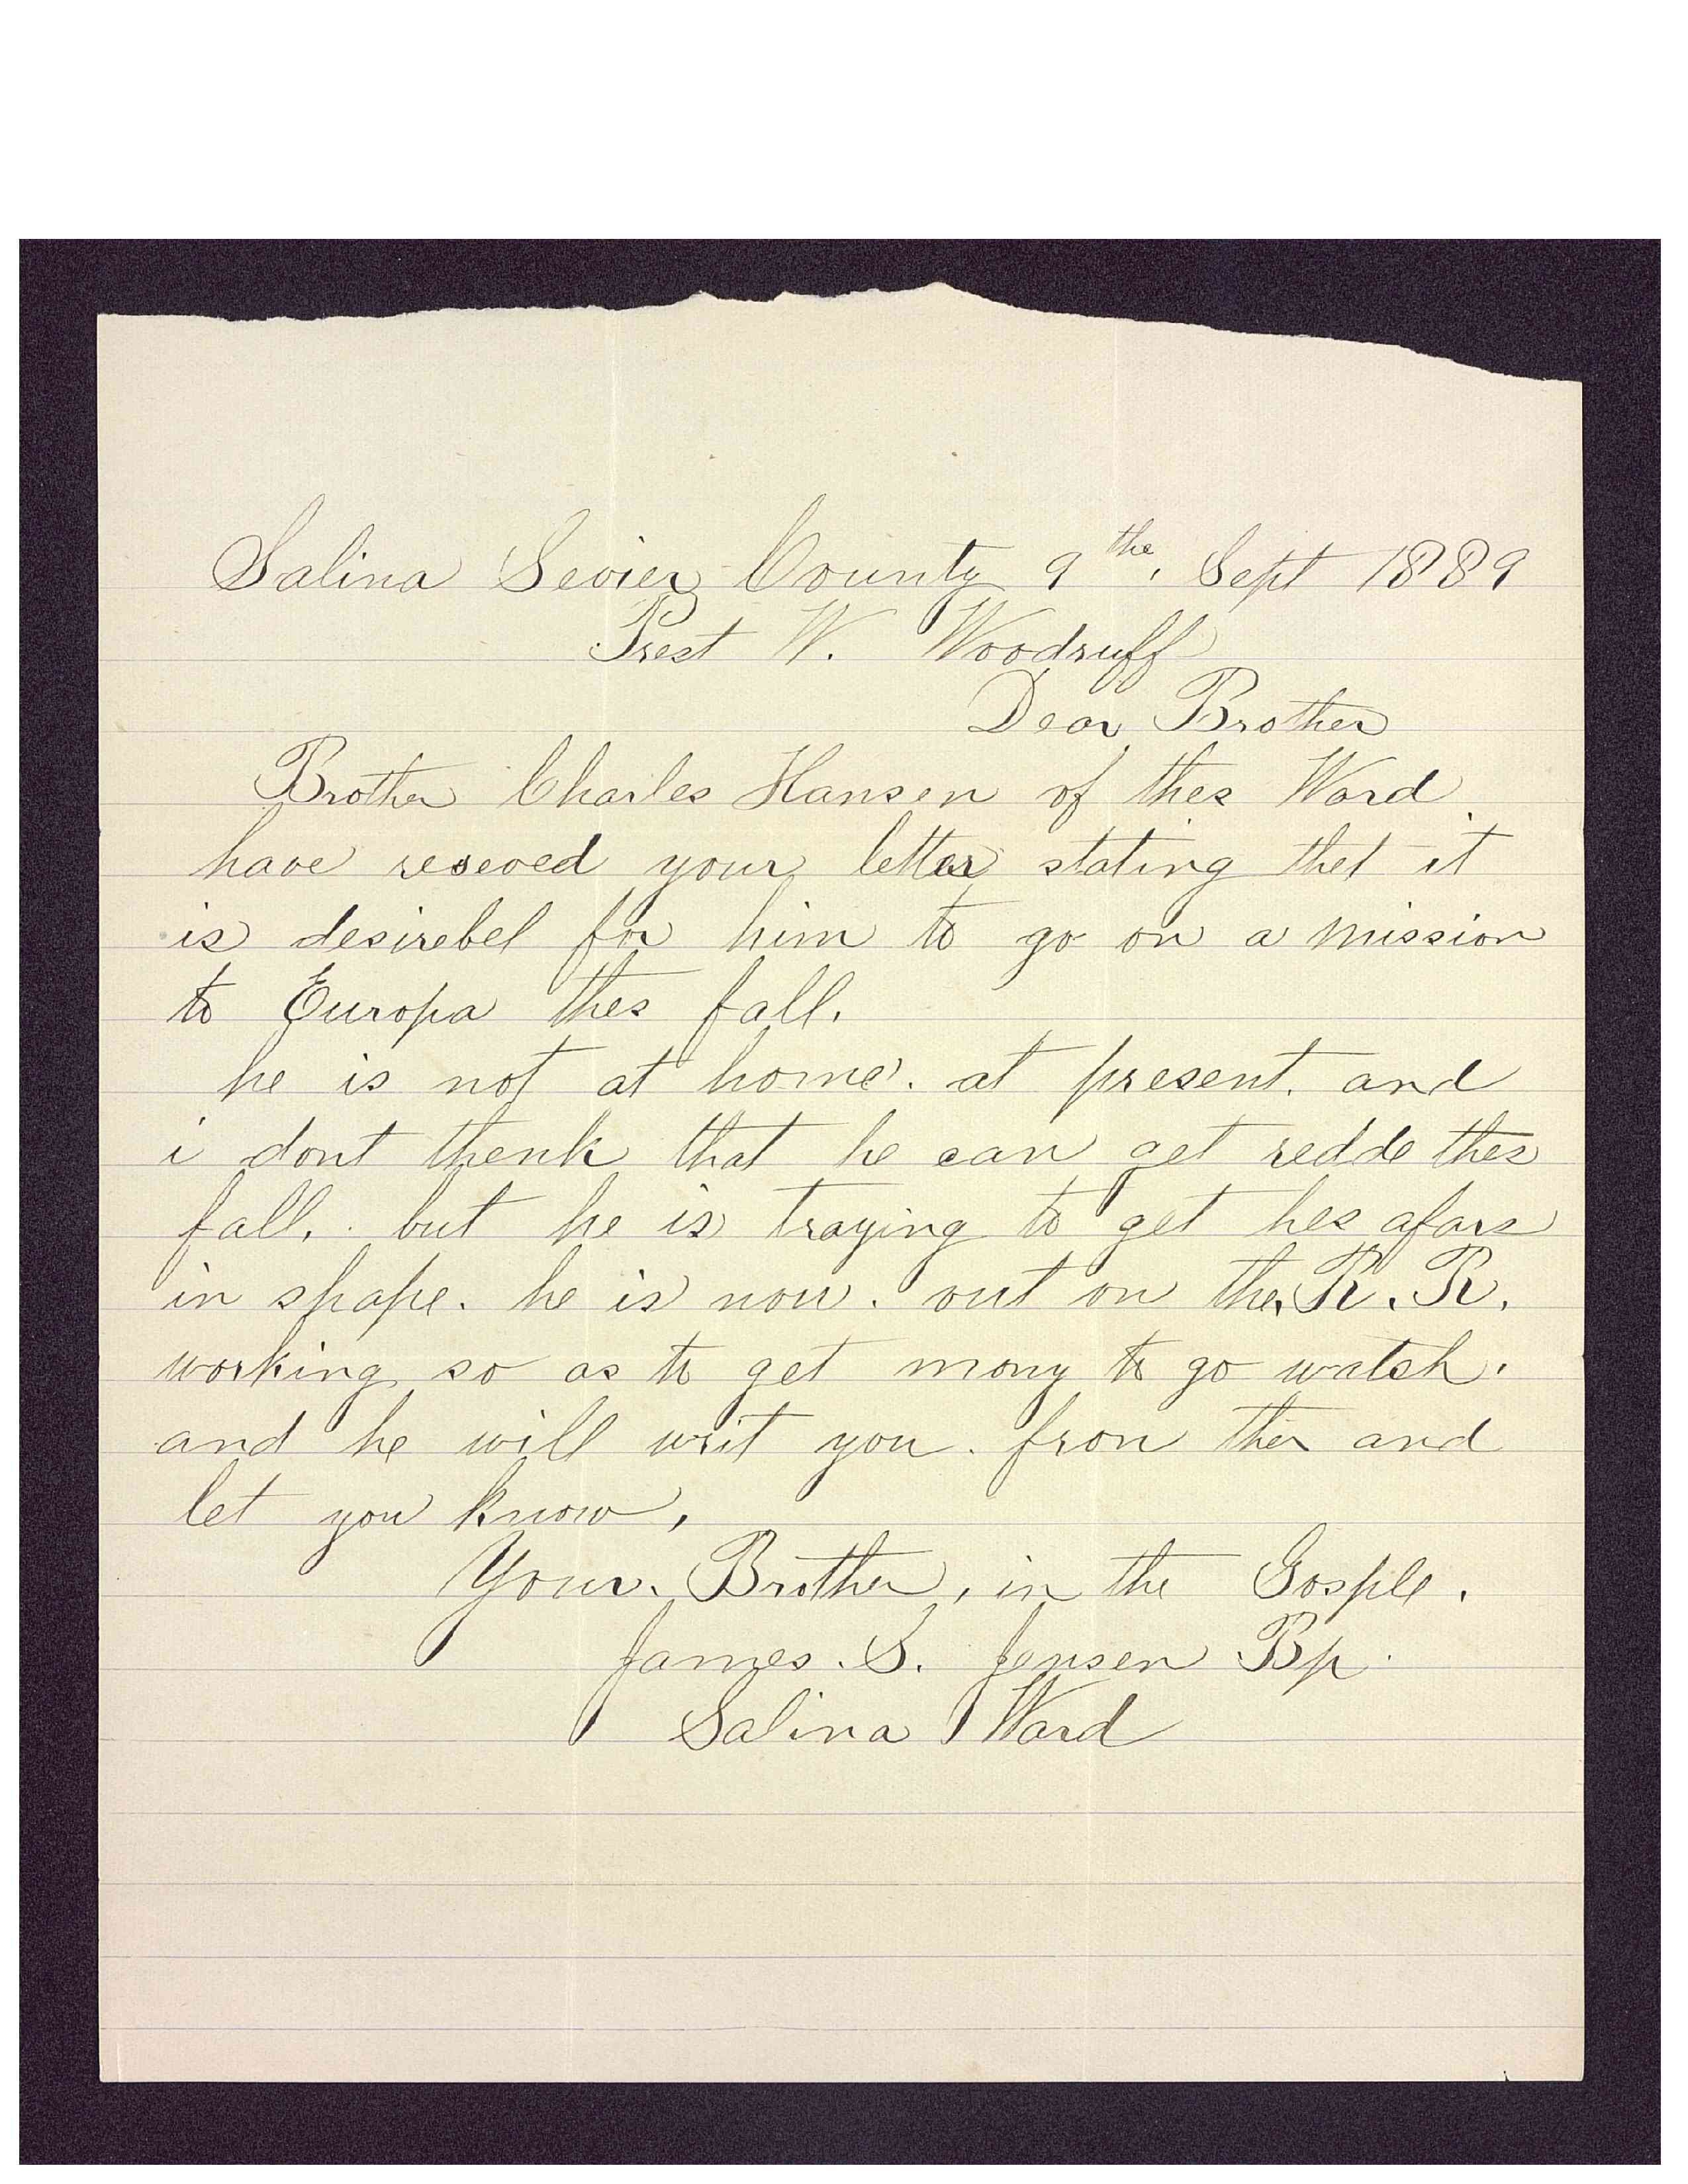 Salina Sevier County 9the, Sept 1889
Prest W. Woodruff
Dear Brother
Brother Charles Hansen of thes Ward
have reseved your letter stating thet it
is desirebel for him to go on a mission
to Europa thes fall.
he is not at home. at present. and
i dont thenk that he can get redde thes
fall. but he is traying to get hes afars
in shape. he is now. out on the R. R.
working so as to get mony to go watsh.
and he will writ you. fron ther and
let you know,
Your. Brother, in the Gosple.
James. S. Jensen Bp.
Salina Ward